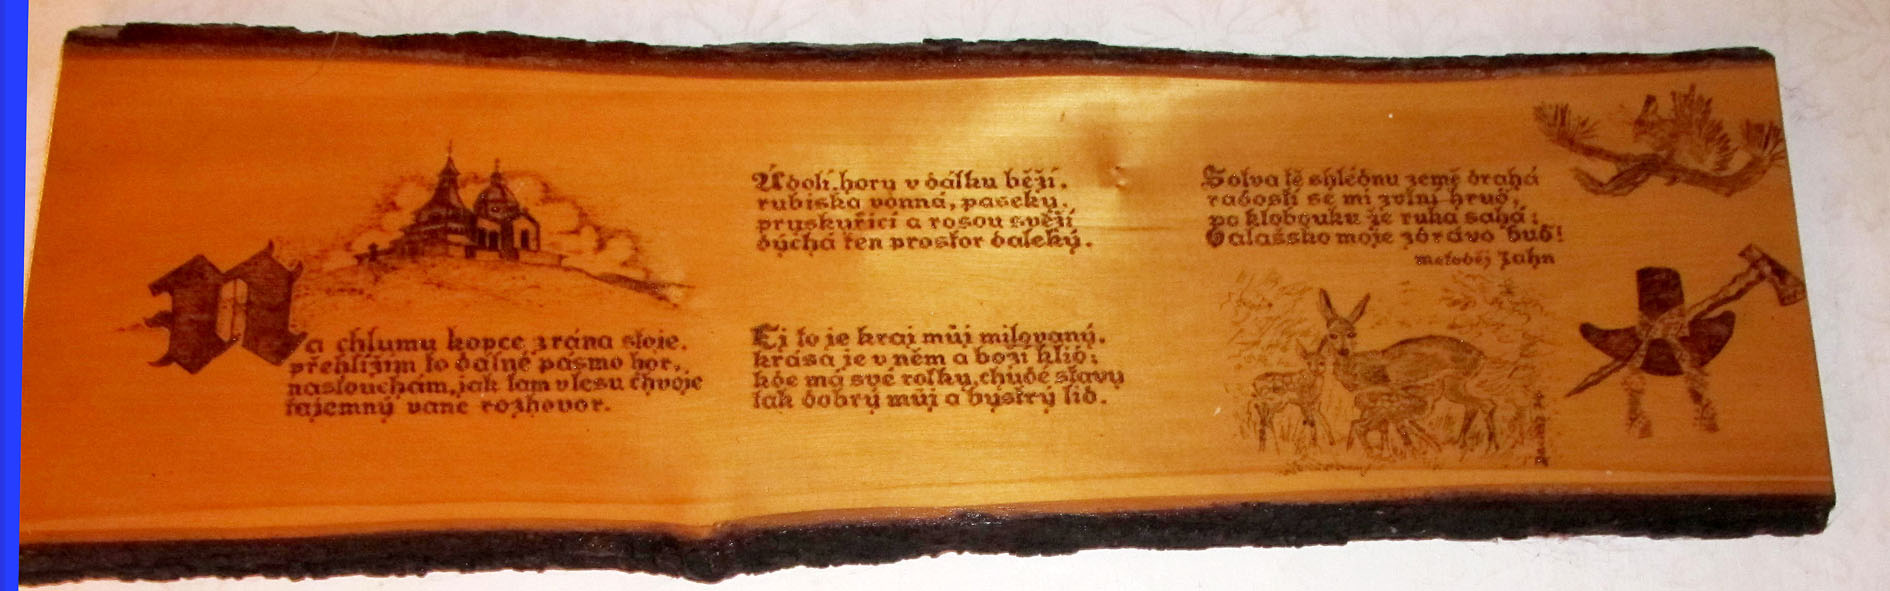 Na chlumu kopce zrána stoje,
přehlížím to dálné pásmo hor,
naslouchám, jak tam v lesu chvoje
tajemný vane rozhovor.
Údolí, hory v dálku běží,
rubiska vonná, paseky,
pryskyřicí a rosou svěží
dýchá ten prostor daleký.
Ej to je kraj můj milovaný,
krása je v něm a boží klid;
kde má své rolky, chudé stavy
tak dobrý můj a bystrý lid.
Sotva tě shlédnu země drahá
radostí se mi zvlní hruď,
po klobouku že ruka sahá:
Valašsko moje zdrávo buď!
metoděj Jahn